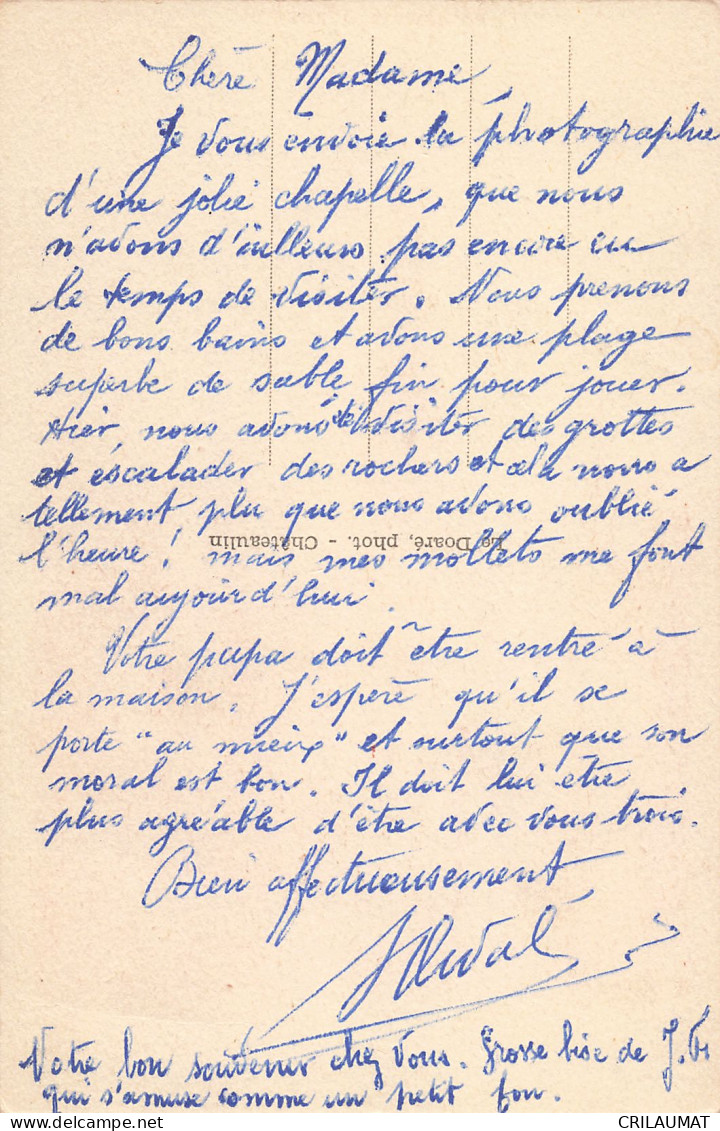 Chère Madame,
Je vous envoie la photographie
d'une jolie chapelle, que nous
n'avons d'ailleurs pas encore eu
le temps de visiter. Nous prenons
de bons bains et avons une plage
superbe de sable fin pour jouer.
Hier, nous avons été visiter des grottes
et escalader des rochers et cela nous a
tellement plu que nous avons oublié
l'heure! mais mes mollets me font
Le Doaré, phot. - Châteaulin
mal aujourd'hui.
Votre papa doit être rentré à
la maison. J'espère qu'il se
porte "au mieux" et surtout que son
moral est bon. Il doit lui être
plus agréable d'être avec vous trois.
Bien affectueusement
Votre bon souvenir chez vous. Grosse bise de J.
qui s'amuse comme un petit fou.
CRILAUMAT